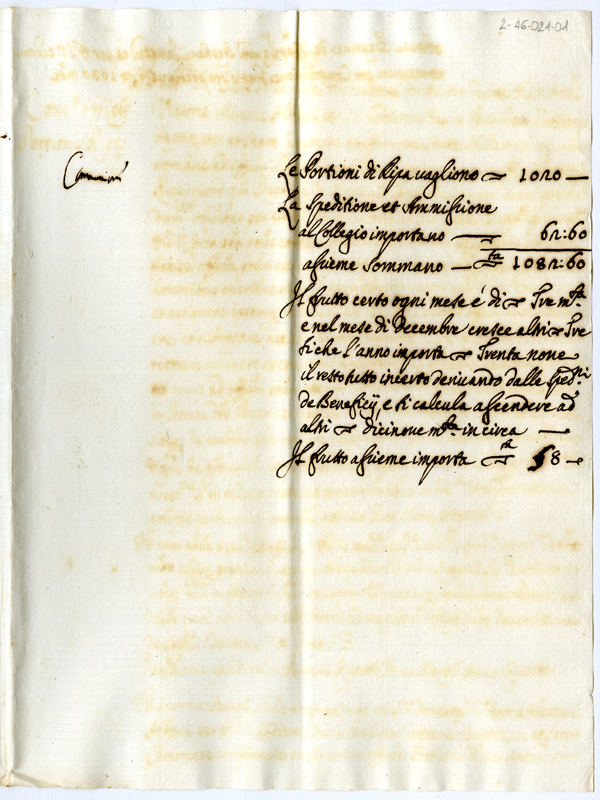 2-46-021-01
Le Portioni di Ripa vagliono 1020
La Speditione et Ammissione
al Collegio importano 62:60
assieme Sommano 1082:60
Il frutto certo ogni mese é di Tre mta.
e nel mese di Decembre cresce altri Tre
si che l'anno importa Trenta nove
il resto tutto incerto derivando dalle Spedni
de Beneficij, e si calcula ascendere ad
altri dicinove mta. in circa
Il frutto assieme importa 58